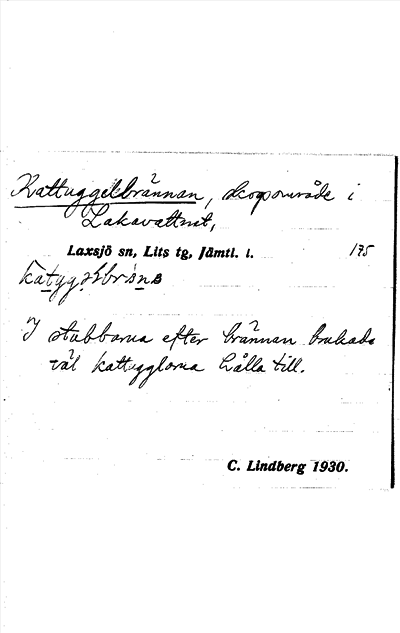 Kattuggelbrännan, skogsområde i
Lakavattnet,
Laxsjö sn, Lits tg, Jämtl. l. 175
"I stubbarna efter brännan brukade
väl kattugglorna hålla till.
C. Lindberg 1930.